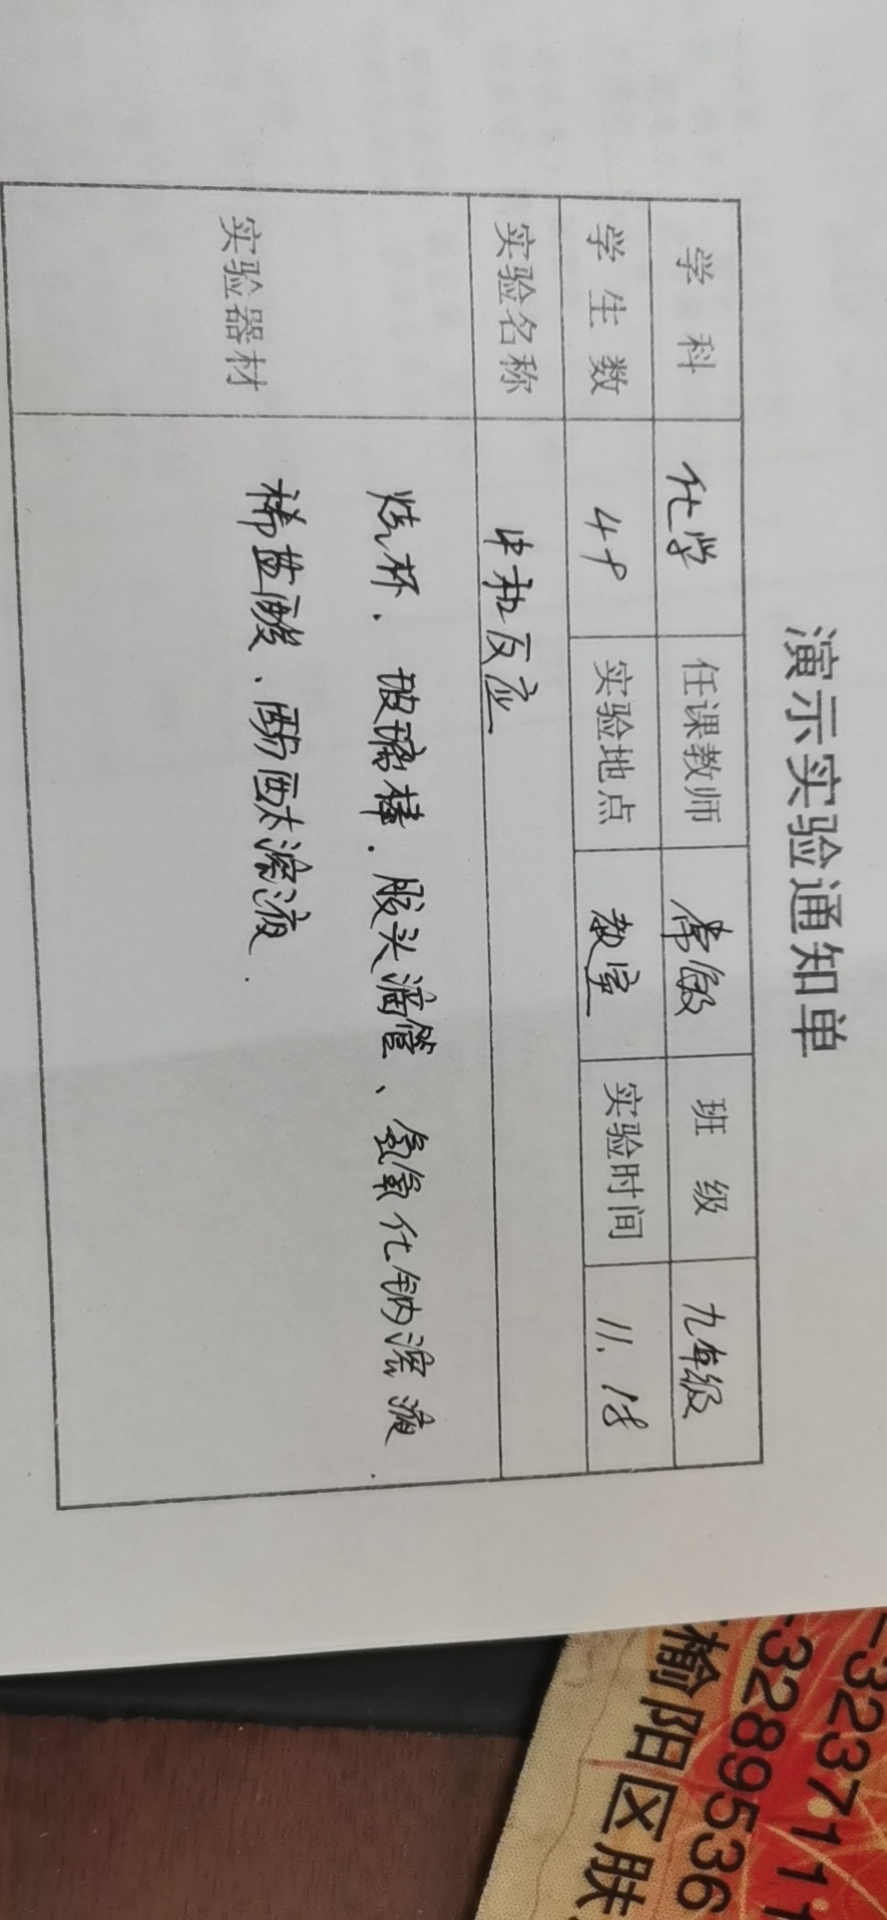 演示实验通知单
学 科 化学 任课教师 常敏 班 级 九年级
学 生 数 49 实验地点 教室 实验时间 11.18
实验名称 中和反应
实验器材 烧杯、玻璃棒、胶头滴管、氢氧化钠溶液、
稀盐酸、酚酞溶液.
-3237111
-3289536
榆阳区肤